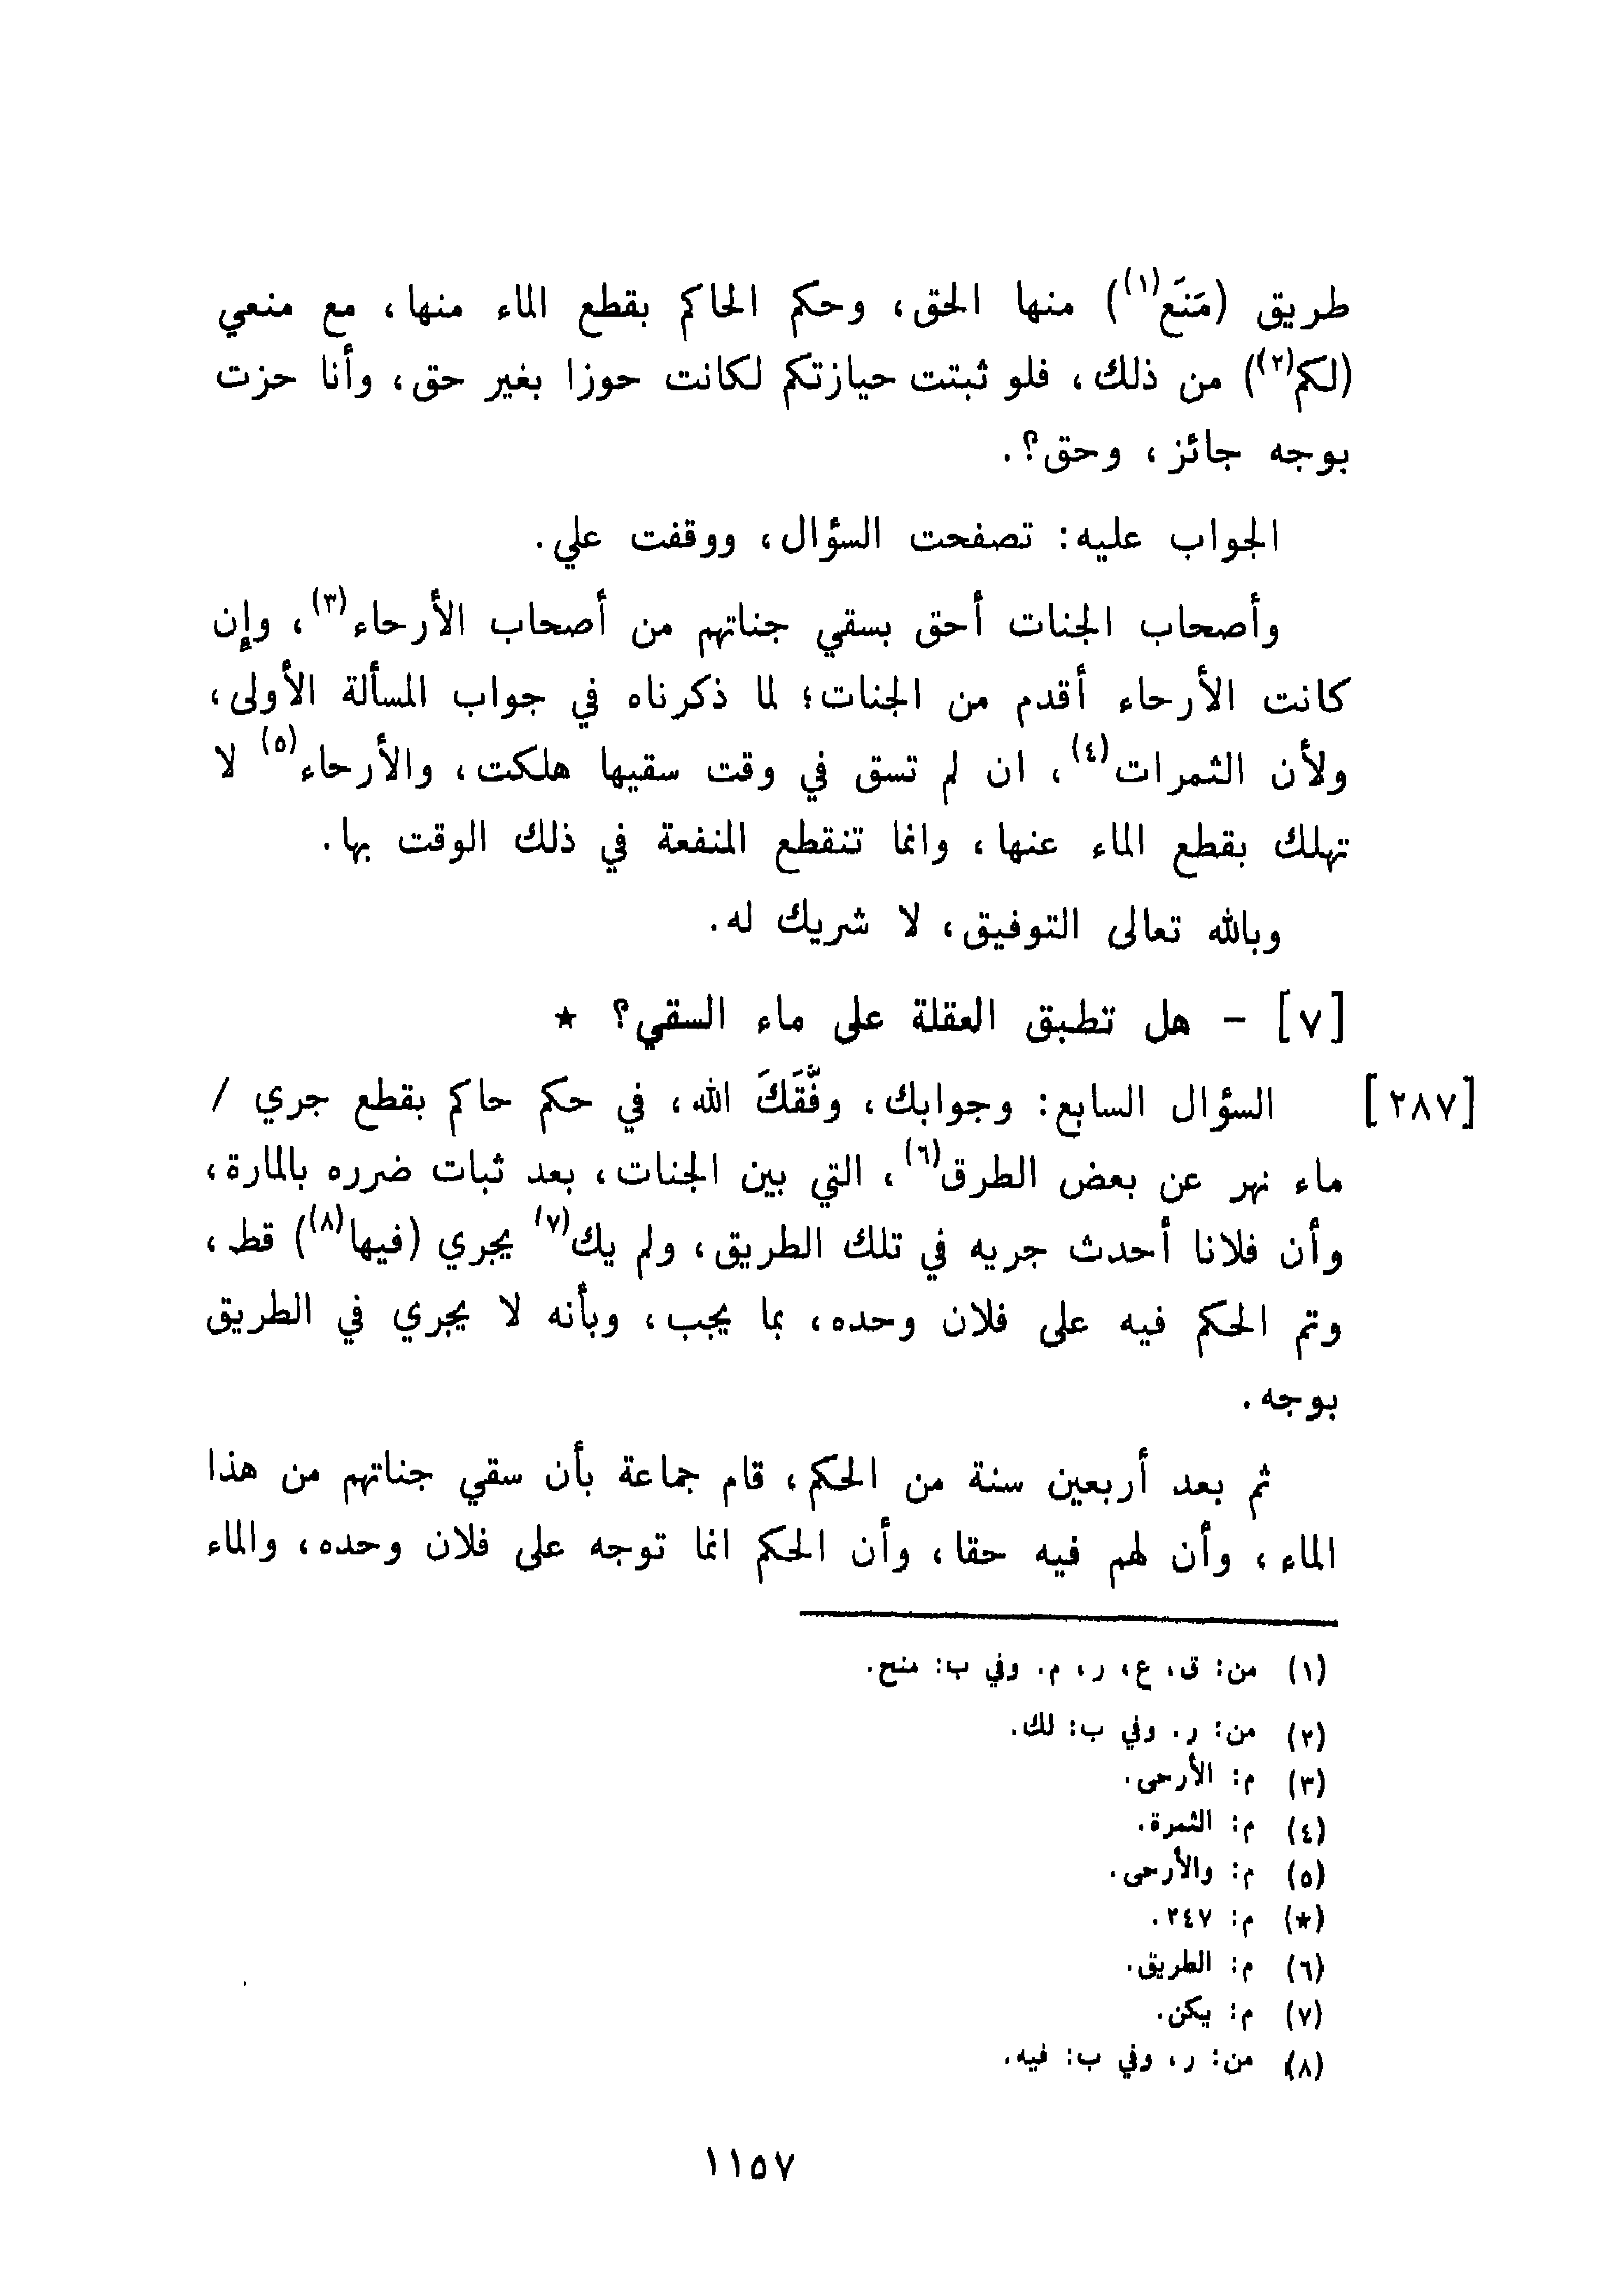 طريق (مَنَع(١)) منها الحق، وحكم الحاكم بقطع الماء منها، مع منعي
(لكم(٢)) من ذلك، فلو ثبتت حيازتكم لكانت حوزا بغير حق، وأنا حزت
بوجه جائز، وحق؟.
الجواب عليه: تصفحت السؤال، ووقفت علي.
وأصحاب الجنات أحق بسقي جناتهم من أصحاب الأرحاء(٣)، وإن
كانت الأرحاء أقدم من الجنات؛ لما ذكرناه في جواب المسألة الأولى،
ولأن الثمرات(٤)، ان لم تسق في وقت سقيها هلكت، والأرحاء(٥) لا
تهلك بقطع الماء عنها، وانما تنقطع المنفعة في ذلك الوقت بها.
وبالله تعالى التوفيق، لا شريك له.
[٧] – هل تطبق العقلة على ماء السقي؟ ★
[٢٨٧] السؤال السابع: وجوابك، وفَّقَكَ الله، في حكم حاكم بقطع جري /
ماء نهر عن بعض الطرق(٦)، التي بين الجنات، بعد ثبات ضرره بالمارة،
وأن فلانا أحدث جريه في تلك الطريق، ولم يك(٧) يجري (فيها(٨)) قط،
وتم الحكم فيه على فلان وحده، بما يجب، وبأنه لا يجري في الطريق
بوجه.
ثم بعد أربعين سنة من الحكم، قام جماعة بأن سقي جناتهم من هذا
الماء، وأن لهم فيه حقا، وأن الحكم انما توجه على فلان وحده، والماء
(١) من: ق، ع، ر، م. وفي ب: منح.
(٢) من: ر. وفي ب: لك.
(٣) م: الأرحى.
(٤) م: الثمرة.
(٥) م: والأرحى.
(★) م: ٢٤٧.
(٦) م: الطريق.
(٧) م: يكن.
(٨) من: ر، وفي ب: فيه.
١١٥٧